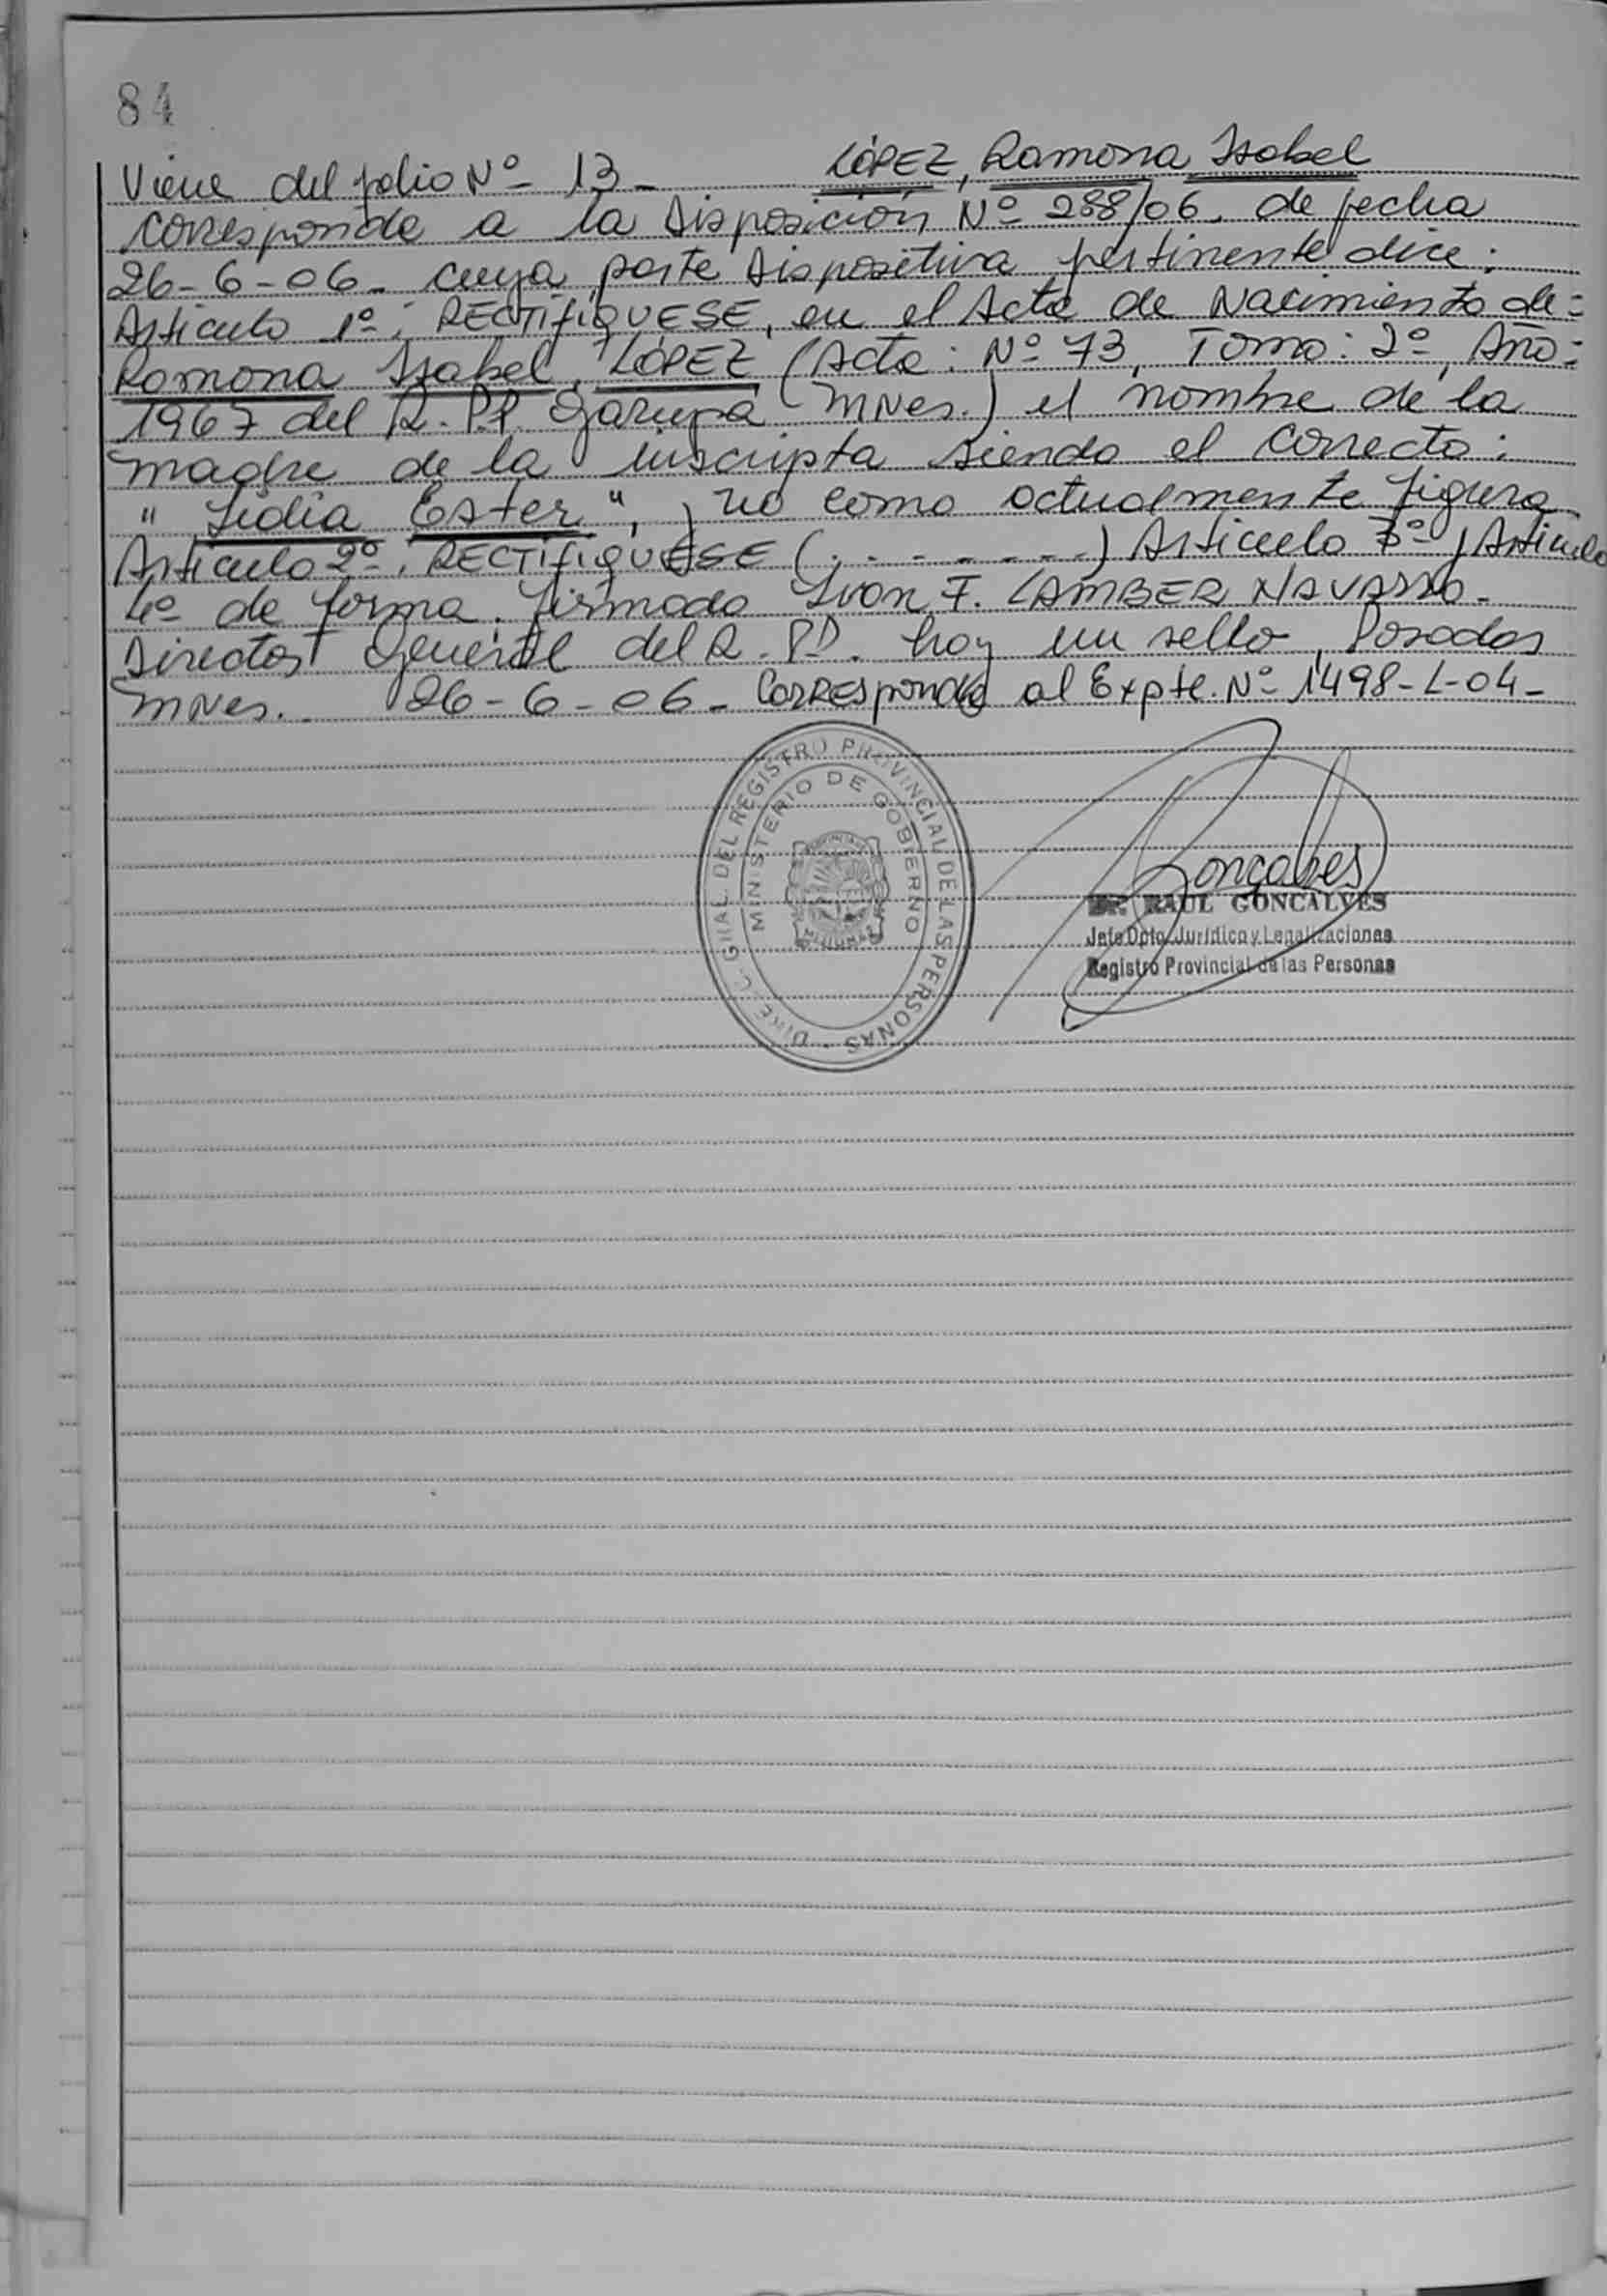 84
Viene del folio Nº 13_ LÓPEZ, Ramona Isabel
corresponde a la Disposición Nº 288/06. de fecha
26-6-06_ cuya parte Dispositiva pertinente dice:
Artículo 1º: RECTIFIQUESE, en el Acta de Nacimiento de:
Ramona Isabel, LÓPEZ (Acta: Nº 73, Tomo: 2º, Año:
1967 del R.P.P. Garupa (Mnes.) el nombre de la
madre de la inscripta siendo el correcto:
"Lidia Ester", y no como actualmente figura
Artículo 2º: RECTIFIQUESE (.--------) Artículo 3º y Artículo
4º de forma. firmado Ivon F. LAMBER NAVARRO-
Director General del R.P.P. hay un sello, Posadas
Mnes._ 26-6-06_ Corresponde al Expte. Nº 1498-L-04-
DIREC. GRAL. DEL REGISTRO PROVINCIAL DE LAS PERSONAS
MINISTERIO DE GOBIERNO
MISIONES
Gonçalves
Dr. RAUL GONCALVES
Jefe Dpto. Jurídico y Legalizaciones
Registro Provincial de las Personas